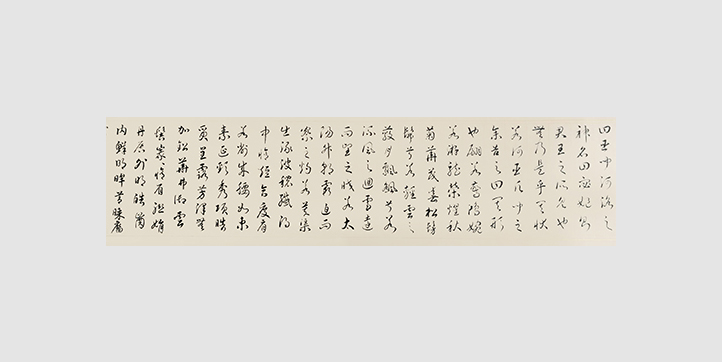 曰臣聞河洛之
神名曰宓妃則
君王之所見也
無乃是乎其狀
若何臣願聞之
余告之曰其形
也翩若驚鴻婉
若遊龍榮曜秋
菊華茂春松髣
髴兮若輕雲之
蔽月飄颻兮若
流風之迴雪遠
而望之皎若太
陽升朝霞迫而
察之灼若芙蕖
出淥波穠纖得
中修短合度肩
若削成腰如約
素延頸秀項皓
質呈露芳澤無
加鉛華弗御雲
髻峨峨修眉聯娟
丹唇外朗皓齒
內鮮明眸善睞靨